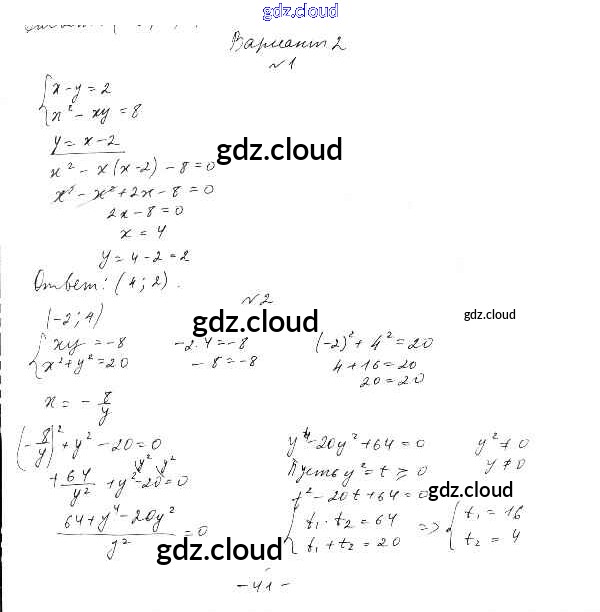 gdz.cloud
Вариант 2
№1
x - y = 2
x² - xy = 8
y = x - 2
gdz.cloud
x² - x(x-2) - 8 = 0
x² - x² + 2x - 8 = 0
2x - 8 = 0
x = 4
y = 4 - 2 = 2
Ответ: (4; 2).
№2
(-2; 4)
gdz.cloud
gdz.cloud
{ xy = -8
x² + y² = 20
-2·4 = -8
-8 = -8
(-2)² + 4² = 20
4 + 16 = 20
20 = 20
x = - 8/y
(- 8/y)² + y² - 20 = 0
+ 64/y² + y² - 20 = 0
y² y²
(64 + y⁴ - 20y²)/y² = 0
gdz.cloud
y⁴ - 20y² + 64 = 0
y² ≠ 0
y ≠ 0
Пусть y² = t ≥ 0
t² - 20t + 64 = 0
gdz.cloud
{ t₁ · t₂ = 64
t₁ + t₂ = 20
=> { t₁ = 16
t₂ = 4
gdz.cloud
- 41 -